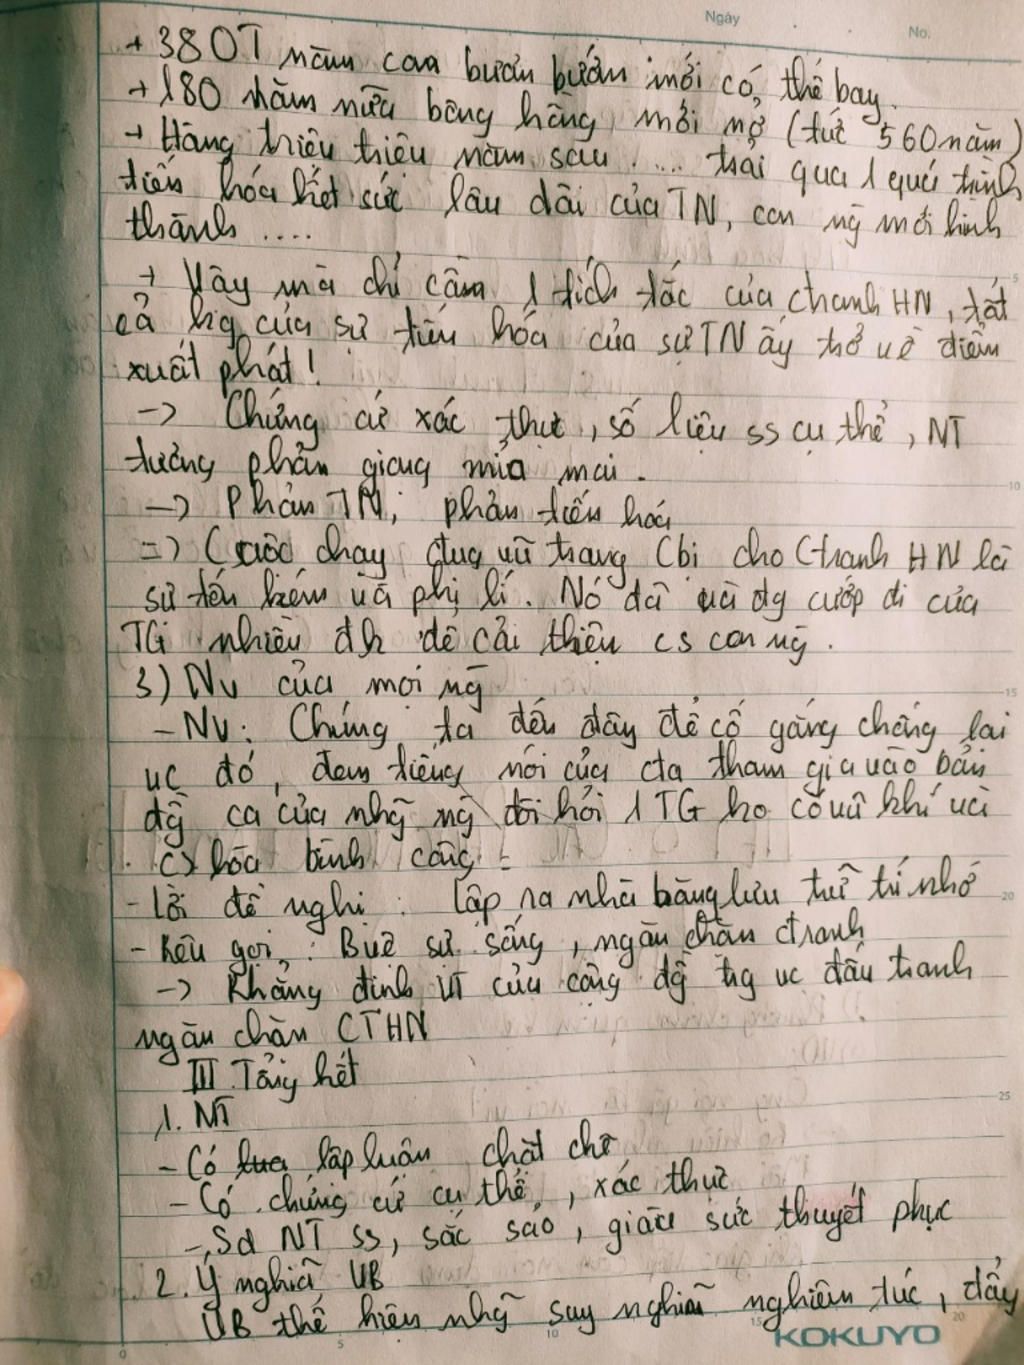 Ngày
No.
+ 380T năm con bươm bướm mới có thể bay.
+ 180 năm nữa bông hồng mới nở (tức 560 năm)
+ Hàng triệu triệu năm sau .... trải qua 1 quá trình
tiến hóa hết sức lâu dài của TN, con ng mới hình
thành ....
+ Vậy mà chỉ cần 1 tích tắc của ctranh HN, tất
cả kq của sự tiến hóa của sự TN ấy trở về điểm
xuất phát!
-> Chứng cứ xác thực, số liệu ss cụ thể, NT
tương phản giọng mỉa mai.
-> Phản TN, phản tiến hóa
=> Cuộc chạy đua vũ trang Cbị cho Ctranh HN là
sự tốn kém và phi lí. Nó đã và đg cướp đi của
TG nhiều đk để cải thiện cs con ng.
3) Nv của mọi ng
- NV: Chúng ta đến đây để cố gắng chống lại
vc đó, đem tiếng nói của cta tham gia vào bản
đg ca của nhg ng đòi hỏi 1 TG ko có vũ khí và
cs hòa bình công =
- Lời đề nghị: Lập ra nhà băng lưu trữ trí nhớ
- Kêu gọi: Bvệ sự sống, ngăn chặn ctranh
-> Khẳng định VT của cộng đg trg vc đấu tranh
ngăn chặn CTHN
III. Tổng kết
1. NT
- Có lập luận chặt chẽ
- Có chứng cứ cụ thể, xác thực
- Sd NT ss, sắc sảo, giàu sức thuyết phục
2. Ý nghĩa VB
VB thể hiện nhg suy nghĩ nghiêm túc, đầy
KOKUYO